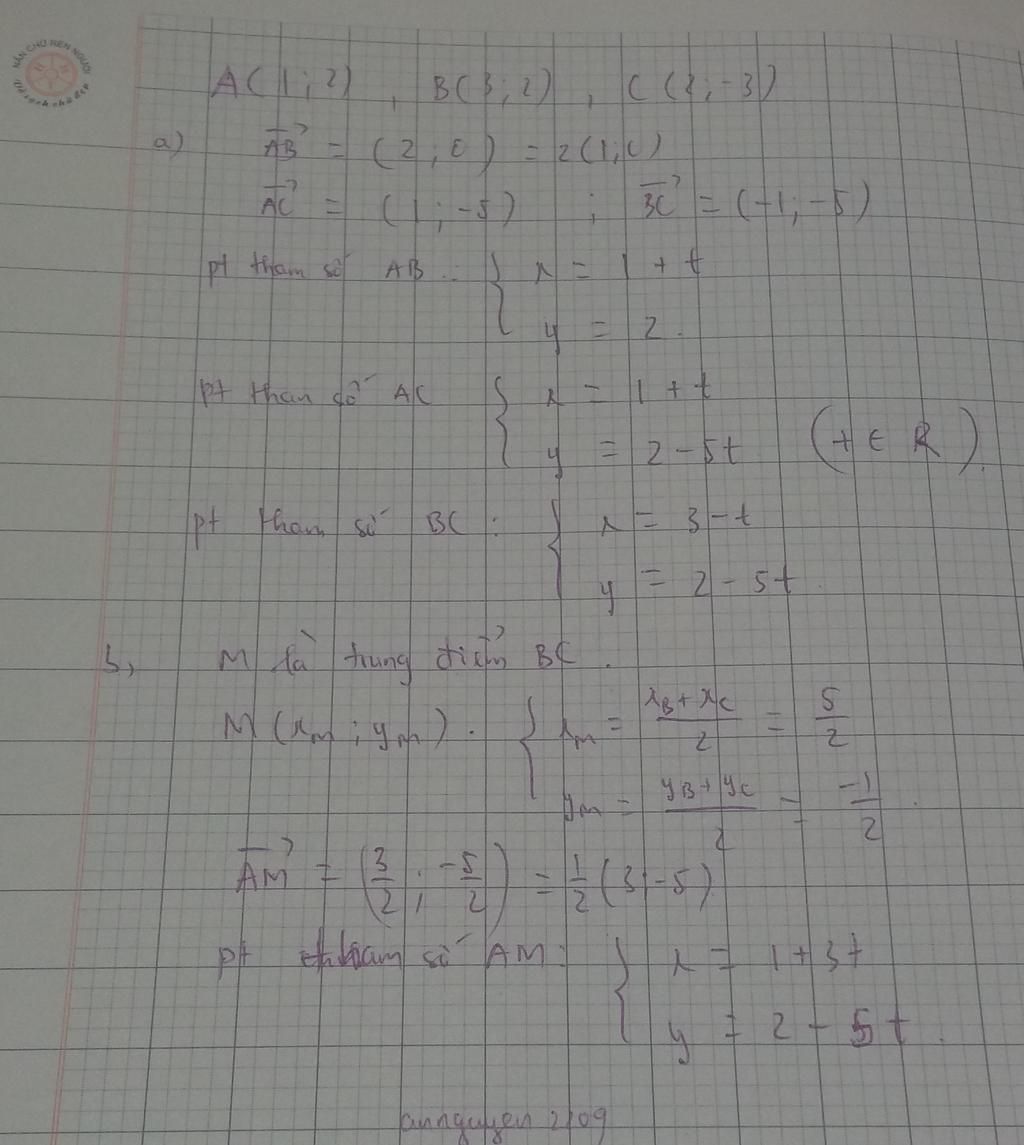 NẮN CHỮ RÈN NGƯỜI
Vở sạch chữ đẹp
A(1;2) , B(3;2) , C(2;-3)
a) $\overrightarrow{AB}$ = (2;0) = 2(1;0)
$\overrightarrow{AC}$ = (1;-5) ; $\overrightarrow{BC}$ = (-1;-5)
pt tham số AB: { x = 1 + t
y = 2.
pt tham số AC { x = 1 + t
y = 2 - 5t (t ∈ R).
pt tham số BC: { x = 3 - t
y = 2 - 5t.
b, M là trung điểm BC.
M(x_M; y_M). { x_M = \frac{x_B + x_C}{2} = \frac{5}{2}
y_M = \frac{y_B + y_C}{2} = \frac{-1}{2}.
$\overrightarrow{AM}$ = (\frac{3}{2}; -\frac{5}{2}) = \frac{1}{2}(3;-5)
pt tham số AM: { x = 1 + 3t
y = 2 - 5t.
annguyen2109